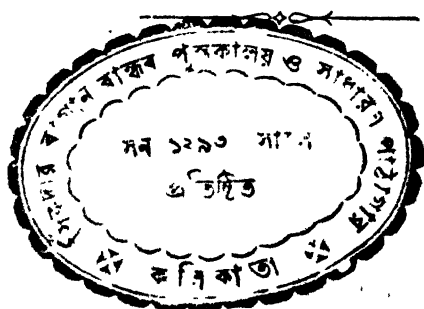 বাগান বান্ধব পুস্তকালয় ও সাধারণ পাঠাগার
সন ১২৯৩ সালে
প্রতিষ্ঠিত
কলিকাতা